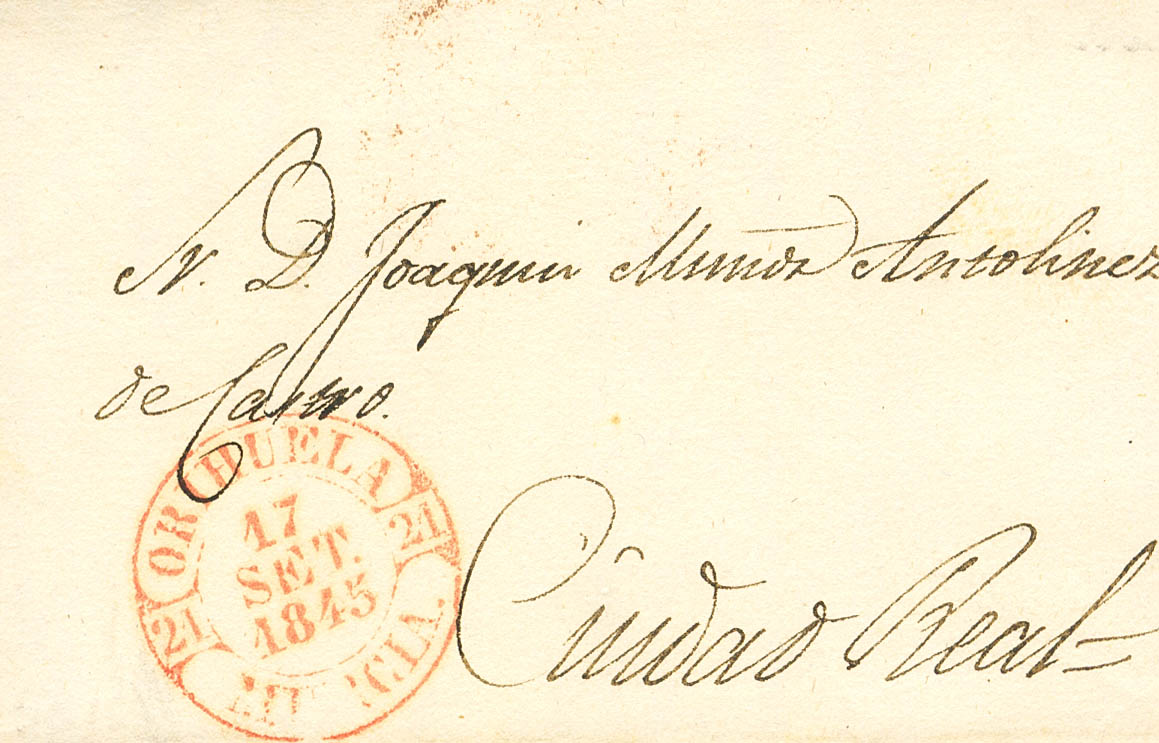 N. D. Joaquin Muñoz Antolinez
de Castro.
ORIHUELA
21
17
SET.
1845
21
MURCIA.
Ciudad Real